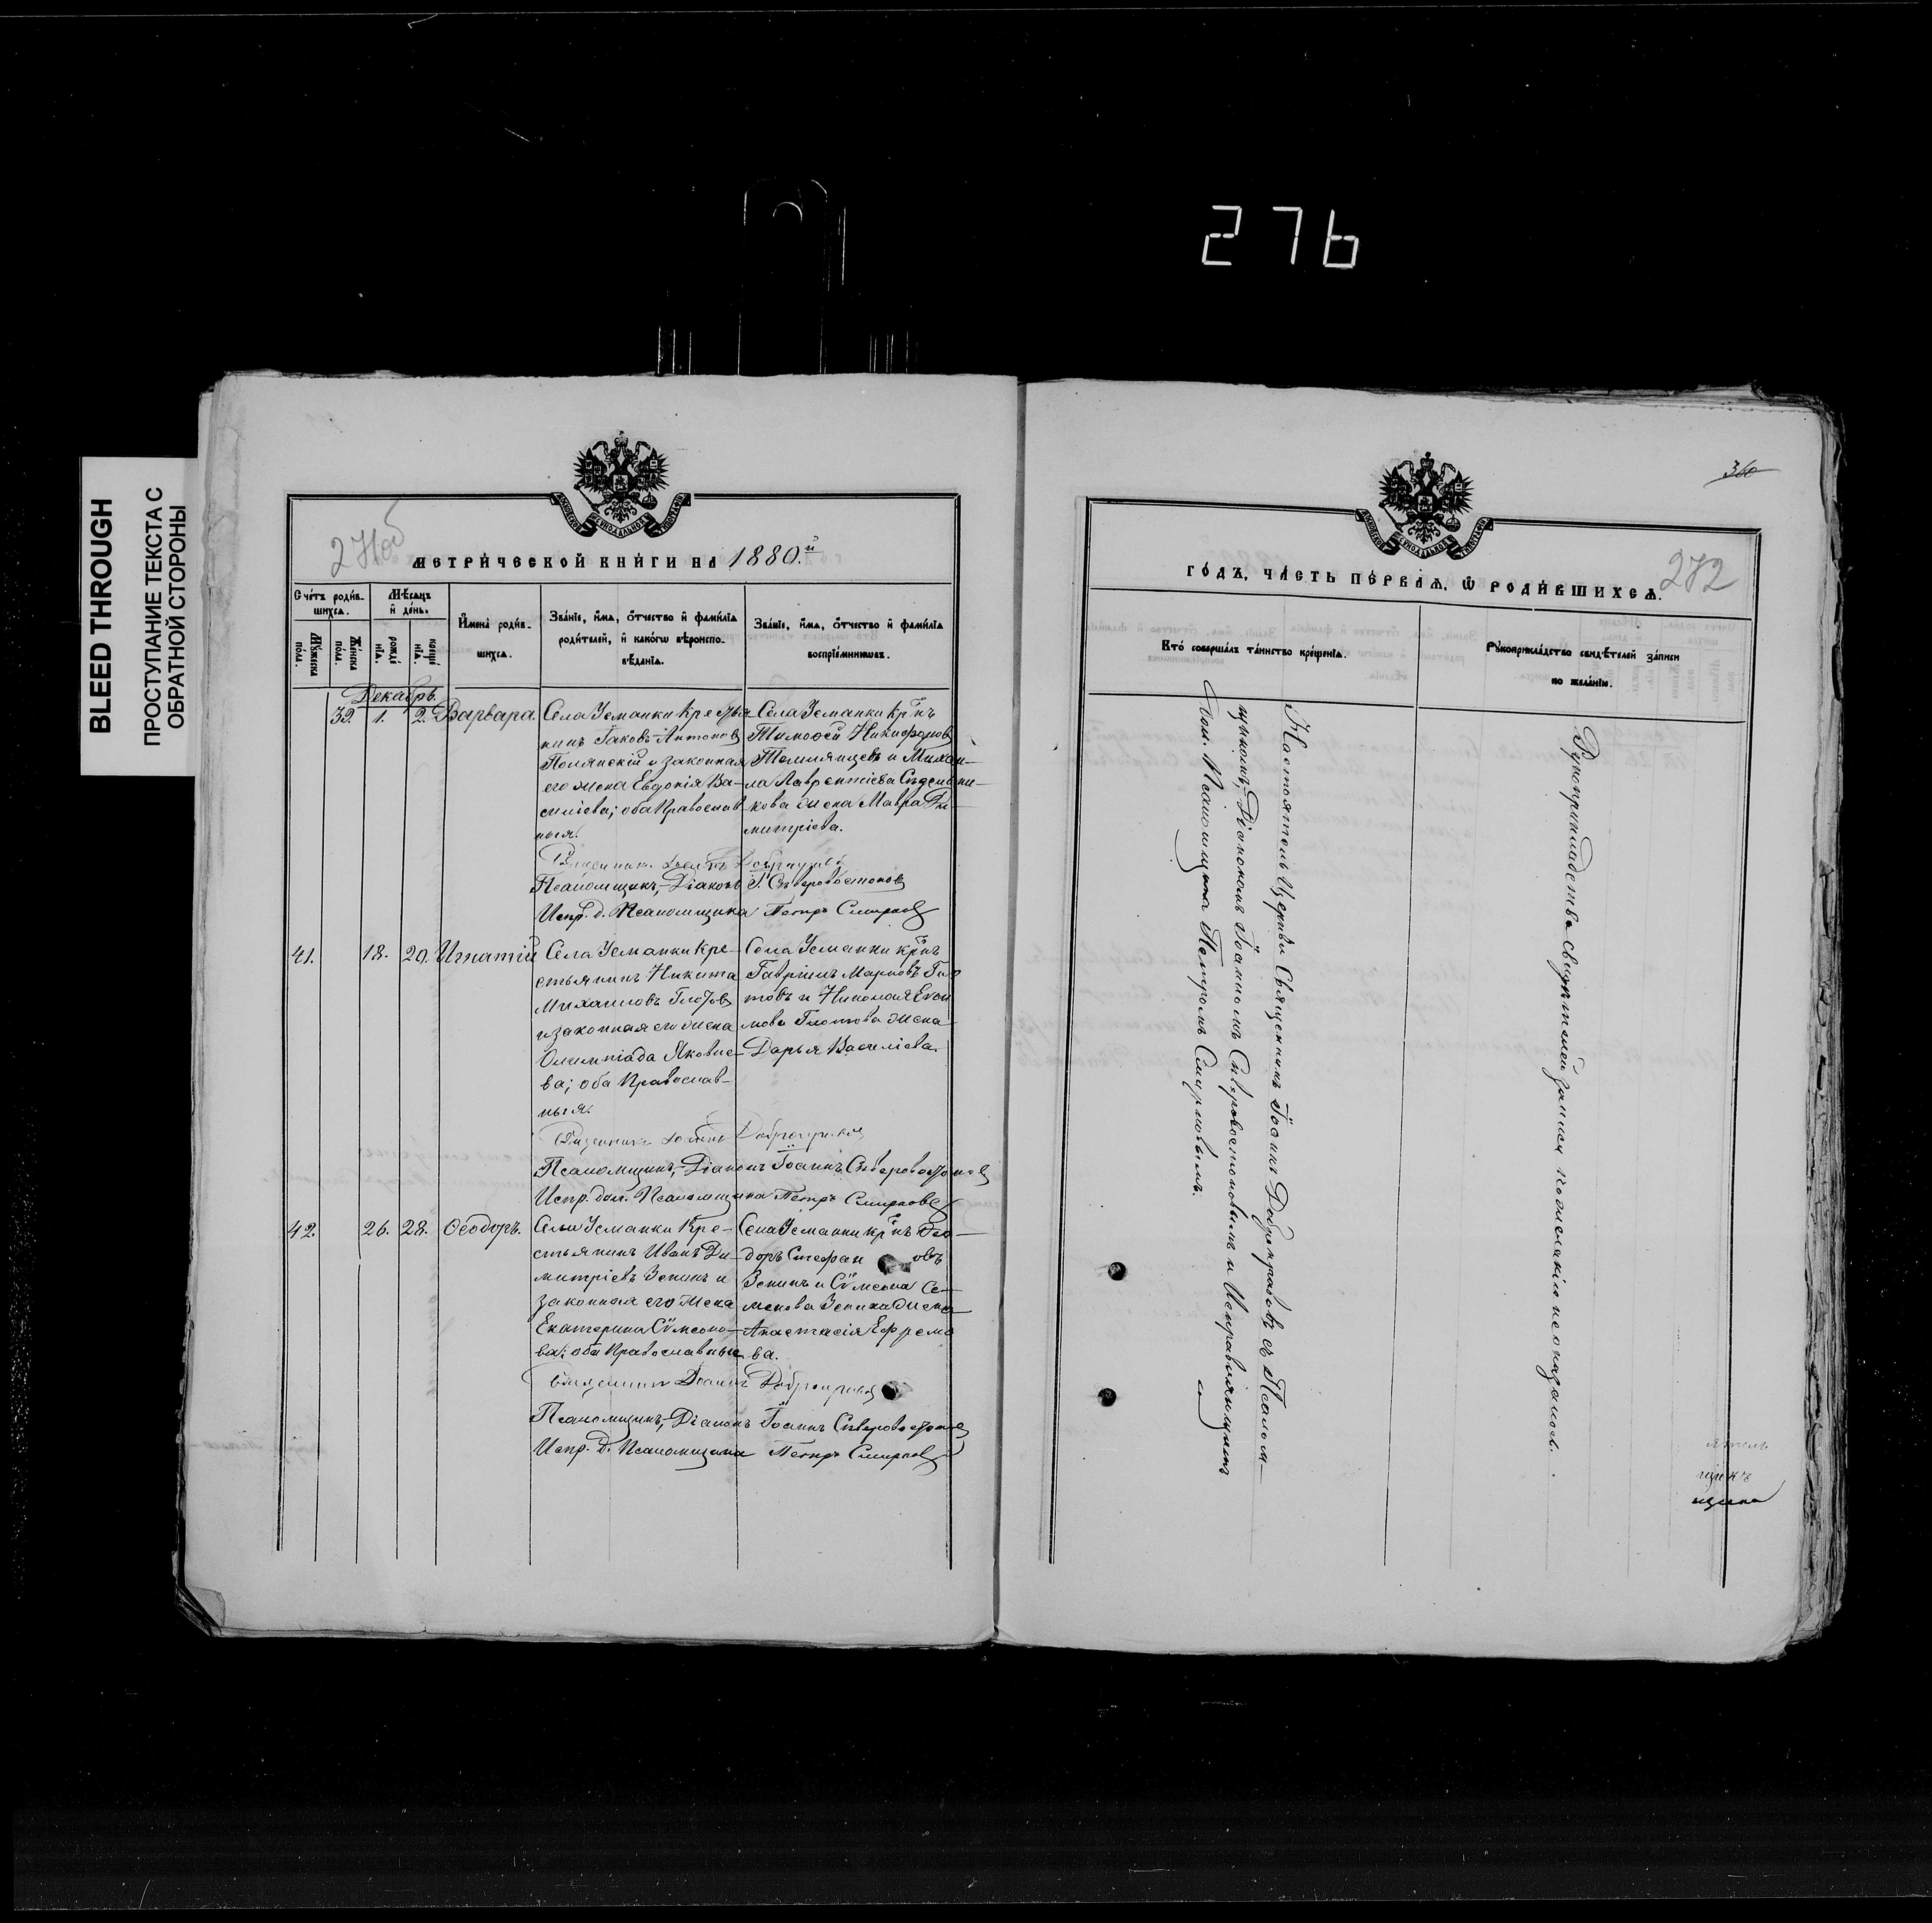 276
BLEED THROUGH
ПРОСТУПАНИЕ ТЕКСТА С
ОБРАТНОЙ СТОРОНЫ
271об
МЕТРИЧЕСКОЙ КНИГИ НА 1880.й
Счетъ родив-
шихся.
Мужеска пола.
Женска пола.
Мѣсяцъ
и день.
рожде
нія.
креще
нія.
Имена родив-
шихся.
Званіе, имя, отчество и фамилія
родителей, и какогѡ вѣроиспо-
вѣданія.
Званіе, имя, отчество и фамилія
воспріемниковъ.
Декабрь
32 1. 2. Варвара
Села Усманки Крестья-
нинъ Іаковъ Антоновъ
Полянскій и законная
его жена Евдокія Ва-
силіева; оба Православ-
ныя.
Села Усманки Кр-нъ
Тимоѳей Никифоровъ
и Михаи-
ла Лаврентіева
кова жена Мавра Ди-
митріева.
Священникъ Іоаннъ Добронравовъ
Псаломщикъ,-Діаконъ І. Сѣверовостоковъ
Испр. д. Псаломщика Петръ Смирновъ
41. 18. 20. Игнатій
Села Усманки Кре-
стьянинъ Никита
Михаиловъ Глотовъ
и законная его жена
Олимпіада Яковле-
ва; оба Православ-
ныя.
Села Усманки кр-нъ
Гавріилъ Марковъ Гло
товъ и Николая
мова Глотова жена
Дарья Василіева
Священникъ Іоаннъ Добронравовъ
Псаломщикъ,-Діаконъ Іоаннъ Сѣверовостоковъ
Испр. дол. Псаломщика Петръ Смирновъ
42. 26. 28. Ѳеодоръ.
Села Усманки Кре-
стьянинъ Иванъ Ди-
митріевъ Зенинъ и
законная его жена
Екатерина Сѵмеоно-
ва; оба Православные
Села Усманки кр-нъ Ѳео-
доръ Стефановъ
Зенинъ и Сѵмеона Се-
менова Зенина жена
Анастасія Ефремо
ва.
Священникъ Іоаннъ Добронравовъ
Псаломщикъ,-Діаконъ Іоаннъ Сѣверовостоковъ
Испр. д. Псаломщика Петръ Смирновъ
360
272
ГОДЪ, ЧАСТЬ ПЕРВАЯ, Ѡ РОДИВШИХСЯ.
Кто совершалъ таинство крещенія.
Рукоприкладство свидѣтелей записи
по желанію.
Настоятель Церкви Священникъ Іоаннъ Добронравовъ съ Псалом-
щикомъ,-Діакономъ Іоанномъ Сѣверовостоковымъ и Исправляющимъ
дол. Псаломщика Петромъ Смирновымъ.
Рукоприкладства свидѣтелей записи по желанію не оказалось.
ятель
щикъ
щика